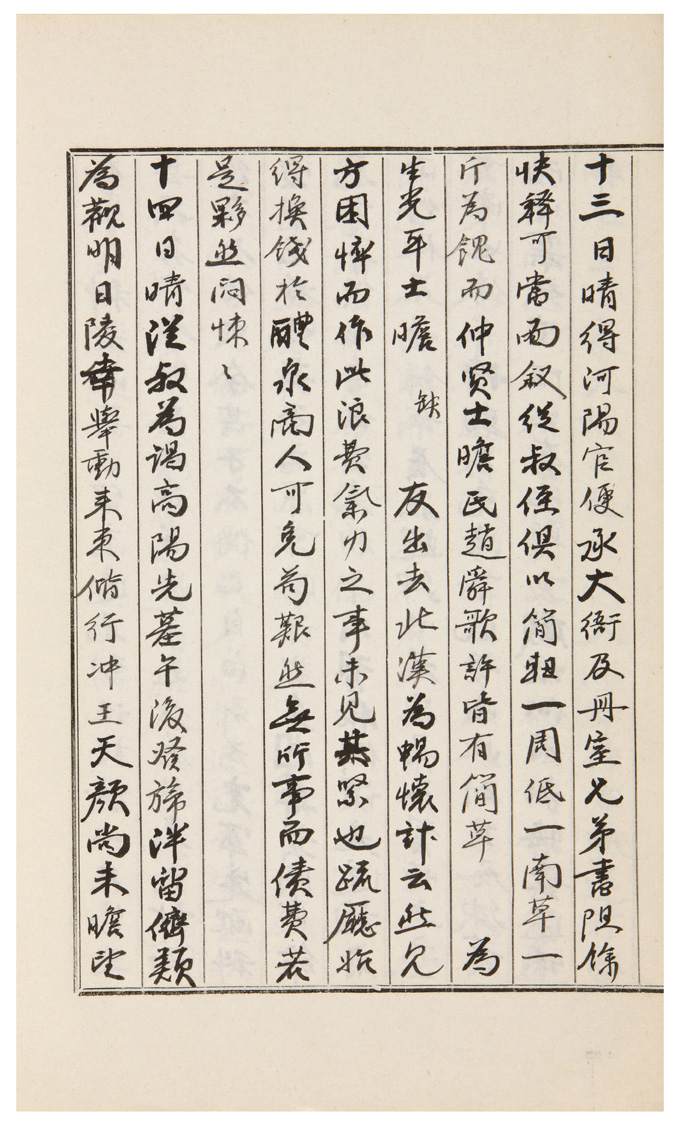 十三日晴得河陽官便承大衙及冊室兄弟書阻餘
快釋可當面叙從叔侄俱以簡軸一周紙一南草一
斤為餽而仲賢士瞻民趙舜歌許皆有簡草 為
生光耳士瞻 缺 友出去北漢為暢懷計云然兄
方困悴而作此浪費氣力之事未見其緊也疏廳始
得換錢於醴泉商人可免苟艱然無所事而債費若
是夥然悶悚〻
十四日晴從叔為謁高陽先墓午後發旆泮留儕類
為觀明日陵幸舉動來東偕行冲王天顏尚未瞻望